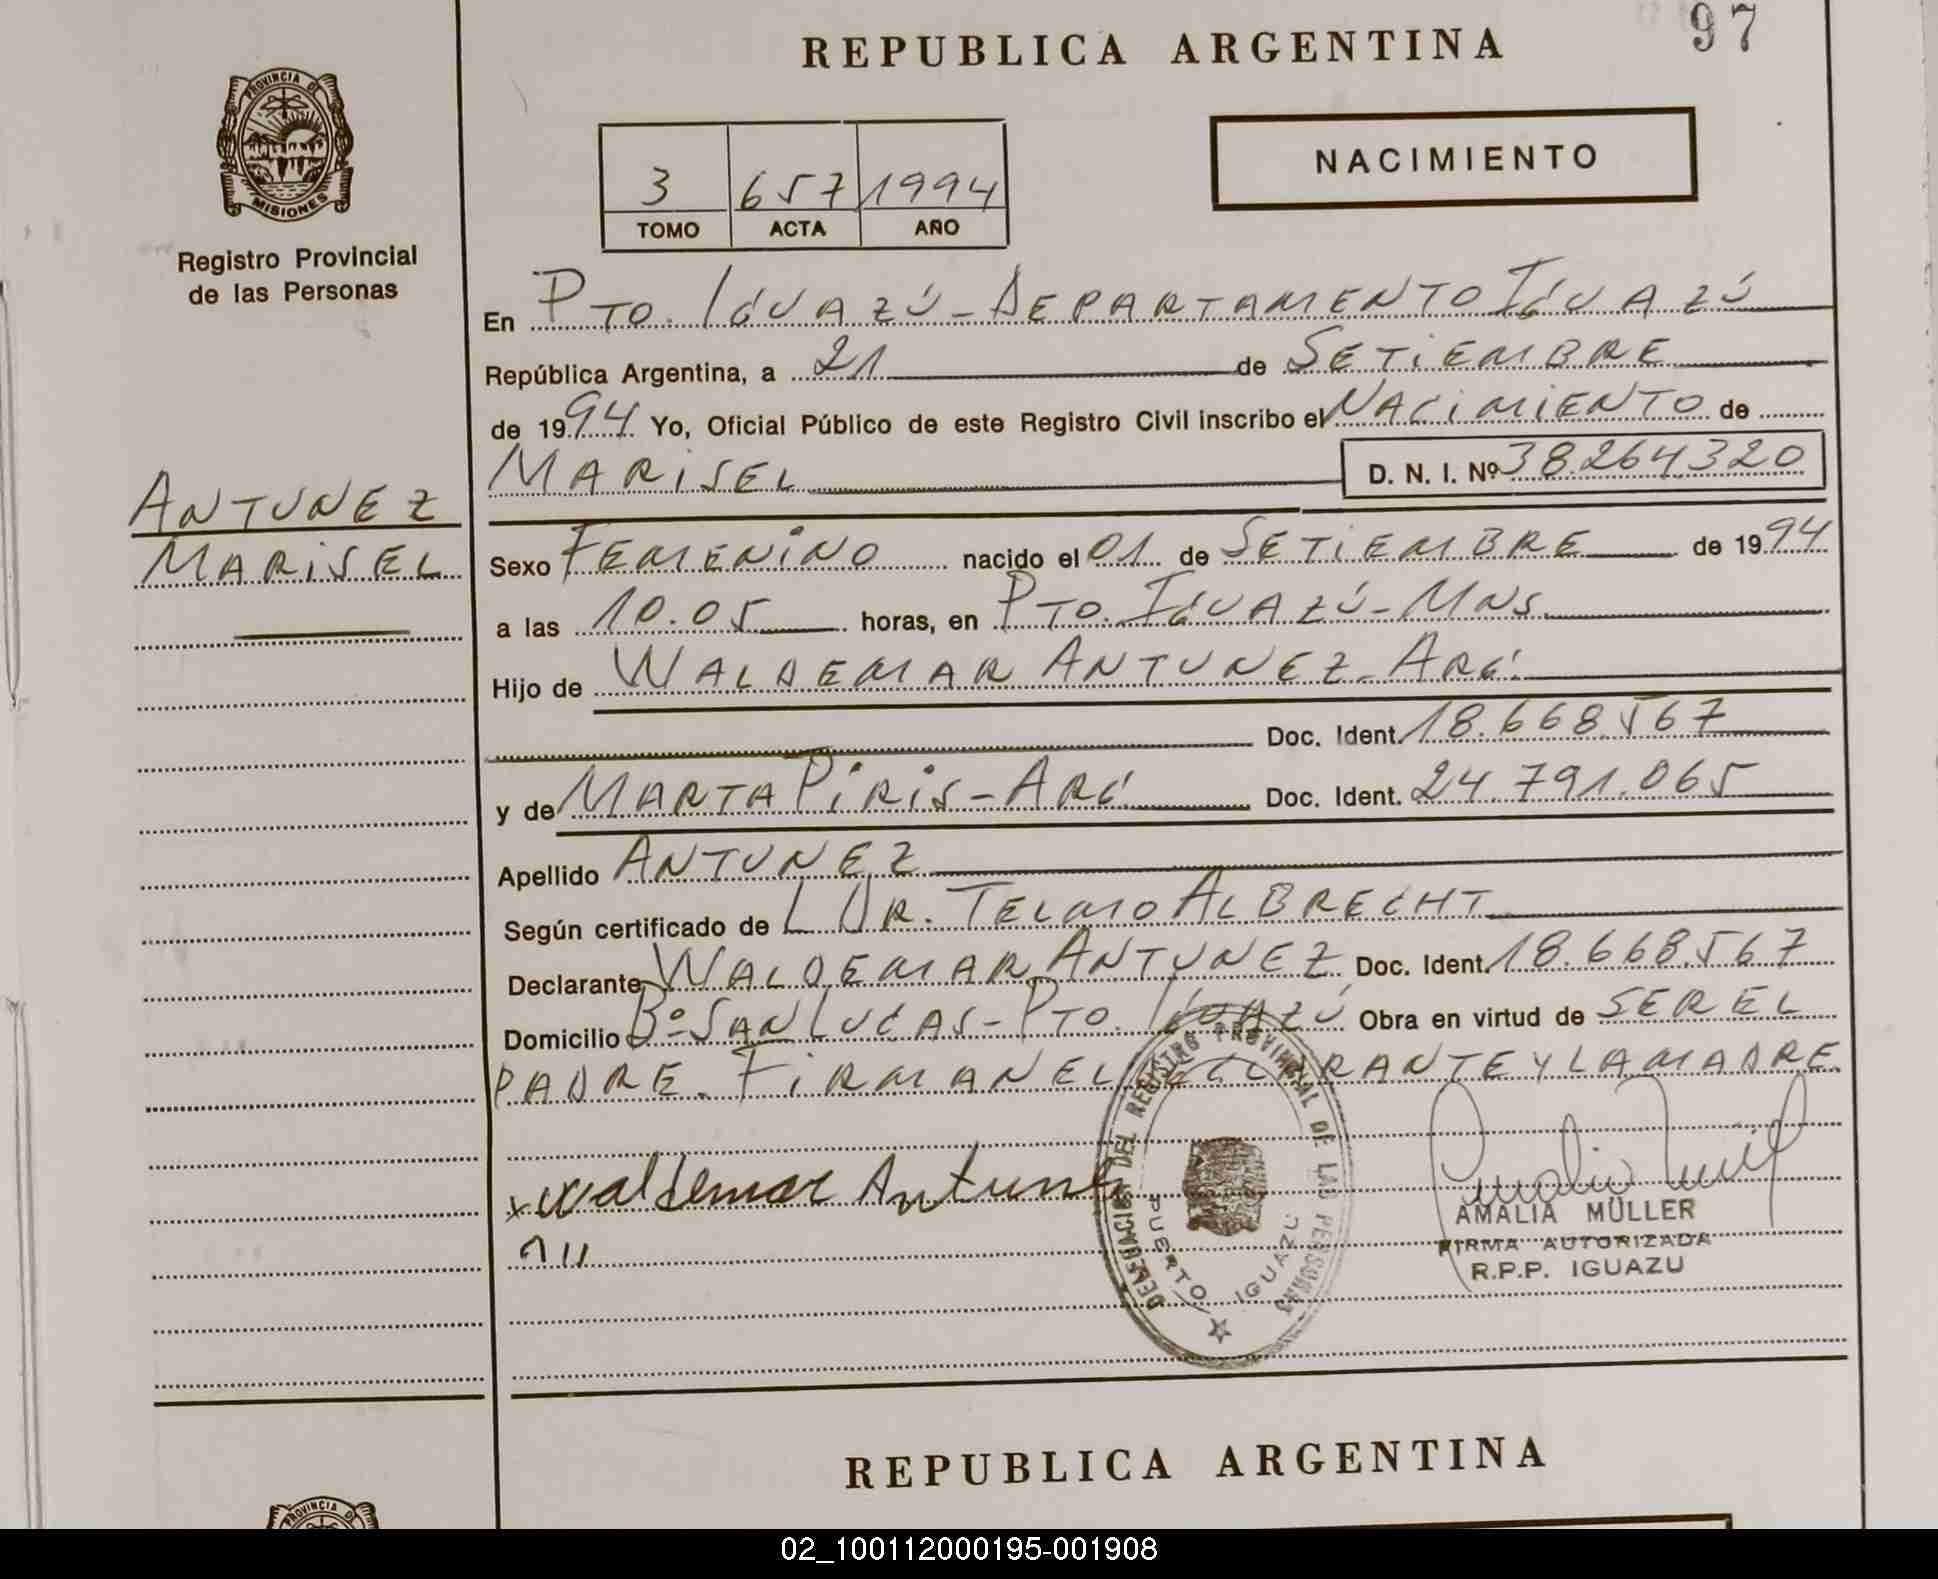 97
REPUBLICA ARGENTINA
PROVINCIA DE
MISIONES
Registro Provincial
de las Personas
NACIMIENTO
3 657 1994
TOMO ACTA AÑO
En PTO. IGUAZÚ - DEPARTAMENTO IGUAZÚ
República Argentina, a 21 de SETIEMBRE
de 1994 Yo, Oficial Público de este Registro Civil inscribo el NACIMIENTO de
MARISEL D. N. I. Nº 38.264.320
ANTUNEZ
MARISEL
Sexo FEMENINO nacido el 01 de SETIEMBRE de 1994
a las 10.05 horas, en PTO. IGUAZÚ - MNS.
Hijo de WALDEMAR ANTUNEZ - ARG.
Doc. Ident. 18.668.567
y de MARTA PIRIS - ARG. Doc. Ident. 24.791.065
Apellido ANTUNEZ
Según certificado de L DR. TELMO ALBRECHT
Declarante WALDEMAR ANTUNEZ Doc. Ident. 18.668.567
Domicilio Bº SAN LUCAS - PTO. IGUAZÚ Obra en virtud de SER EL
PADRE. FIRMAN EL DECLARANTE Y LA MADRE.
x Waldemar Antunez
DELEGACION DEL REGISTRO PROVINCIAL DE LAS PERSONAS
PUERTO IGUAZU
AMALIA MÜLLER
FIRMA AUTORIZADA
R.P.P. IGUAZU
REPUBLICA ARGENTINA
PROVINCIA DE
02_100112000195-001908